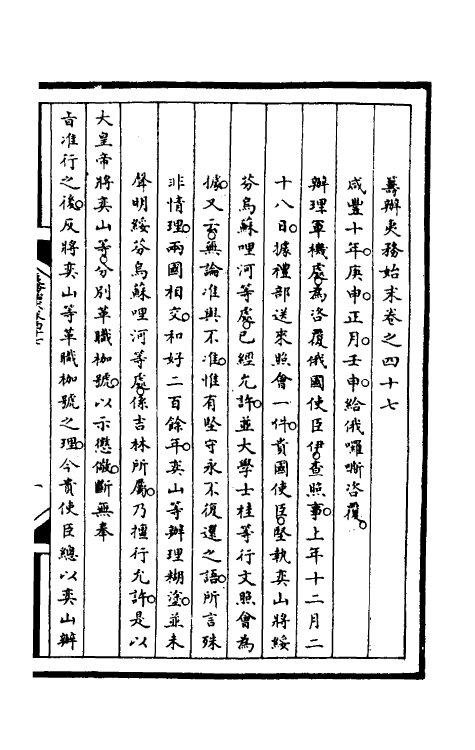 籌辦夷務始末卷之四十七
咸豐十年庚申正月壬申給俄囉嘶咨覆。
辦理軍機處。為咨覆俄國使臣伊。查照事。上年十二月二
十八日。據禮部送來照會一件。貴國使臣。堅執奕山將綏
芬烏蘇哩河等處。已經允許。並大學士桂等行文照會為
據。又云。無論准與不准。惟有堅守永不復還之語。所言殊
非情理。兩國相交。和好二百餘年。奕山等辦理糊塗。並未
聲明綏芬烏蘇哩河等處。係吉林所屬。乃擅行允許。是以
大皇帝將奕山等。分別革職枷號。以示懲儆。斷無奉
旨准行之後。反將奕山等革職枷號之理。今貴使臣總以奕山辦
一